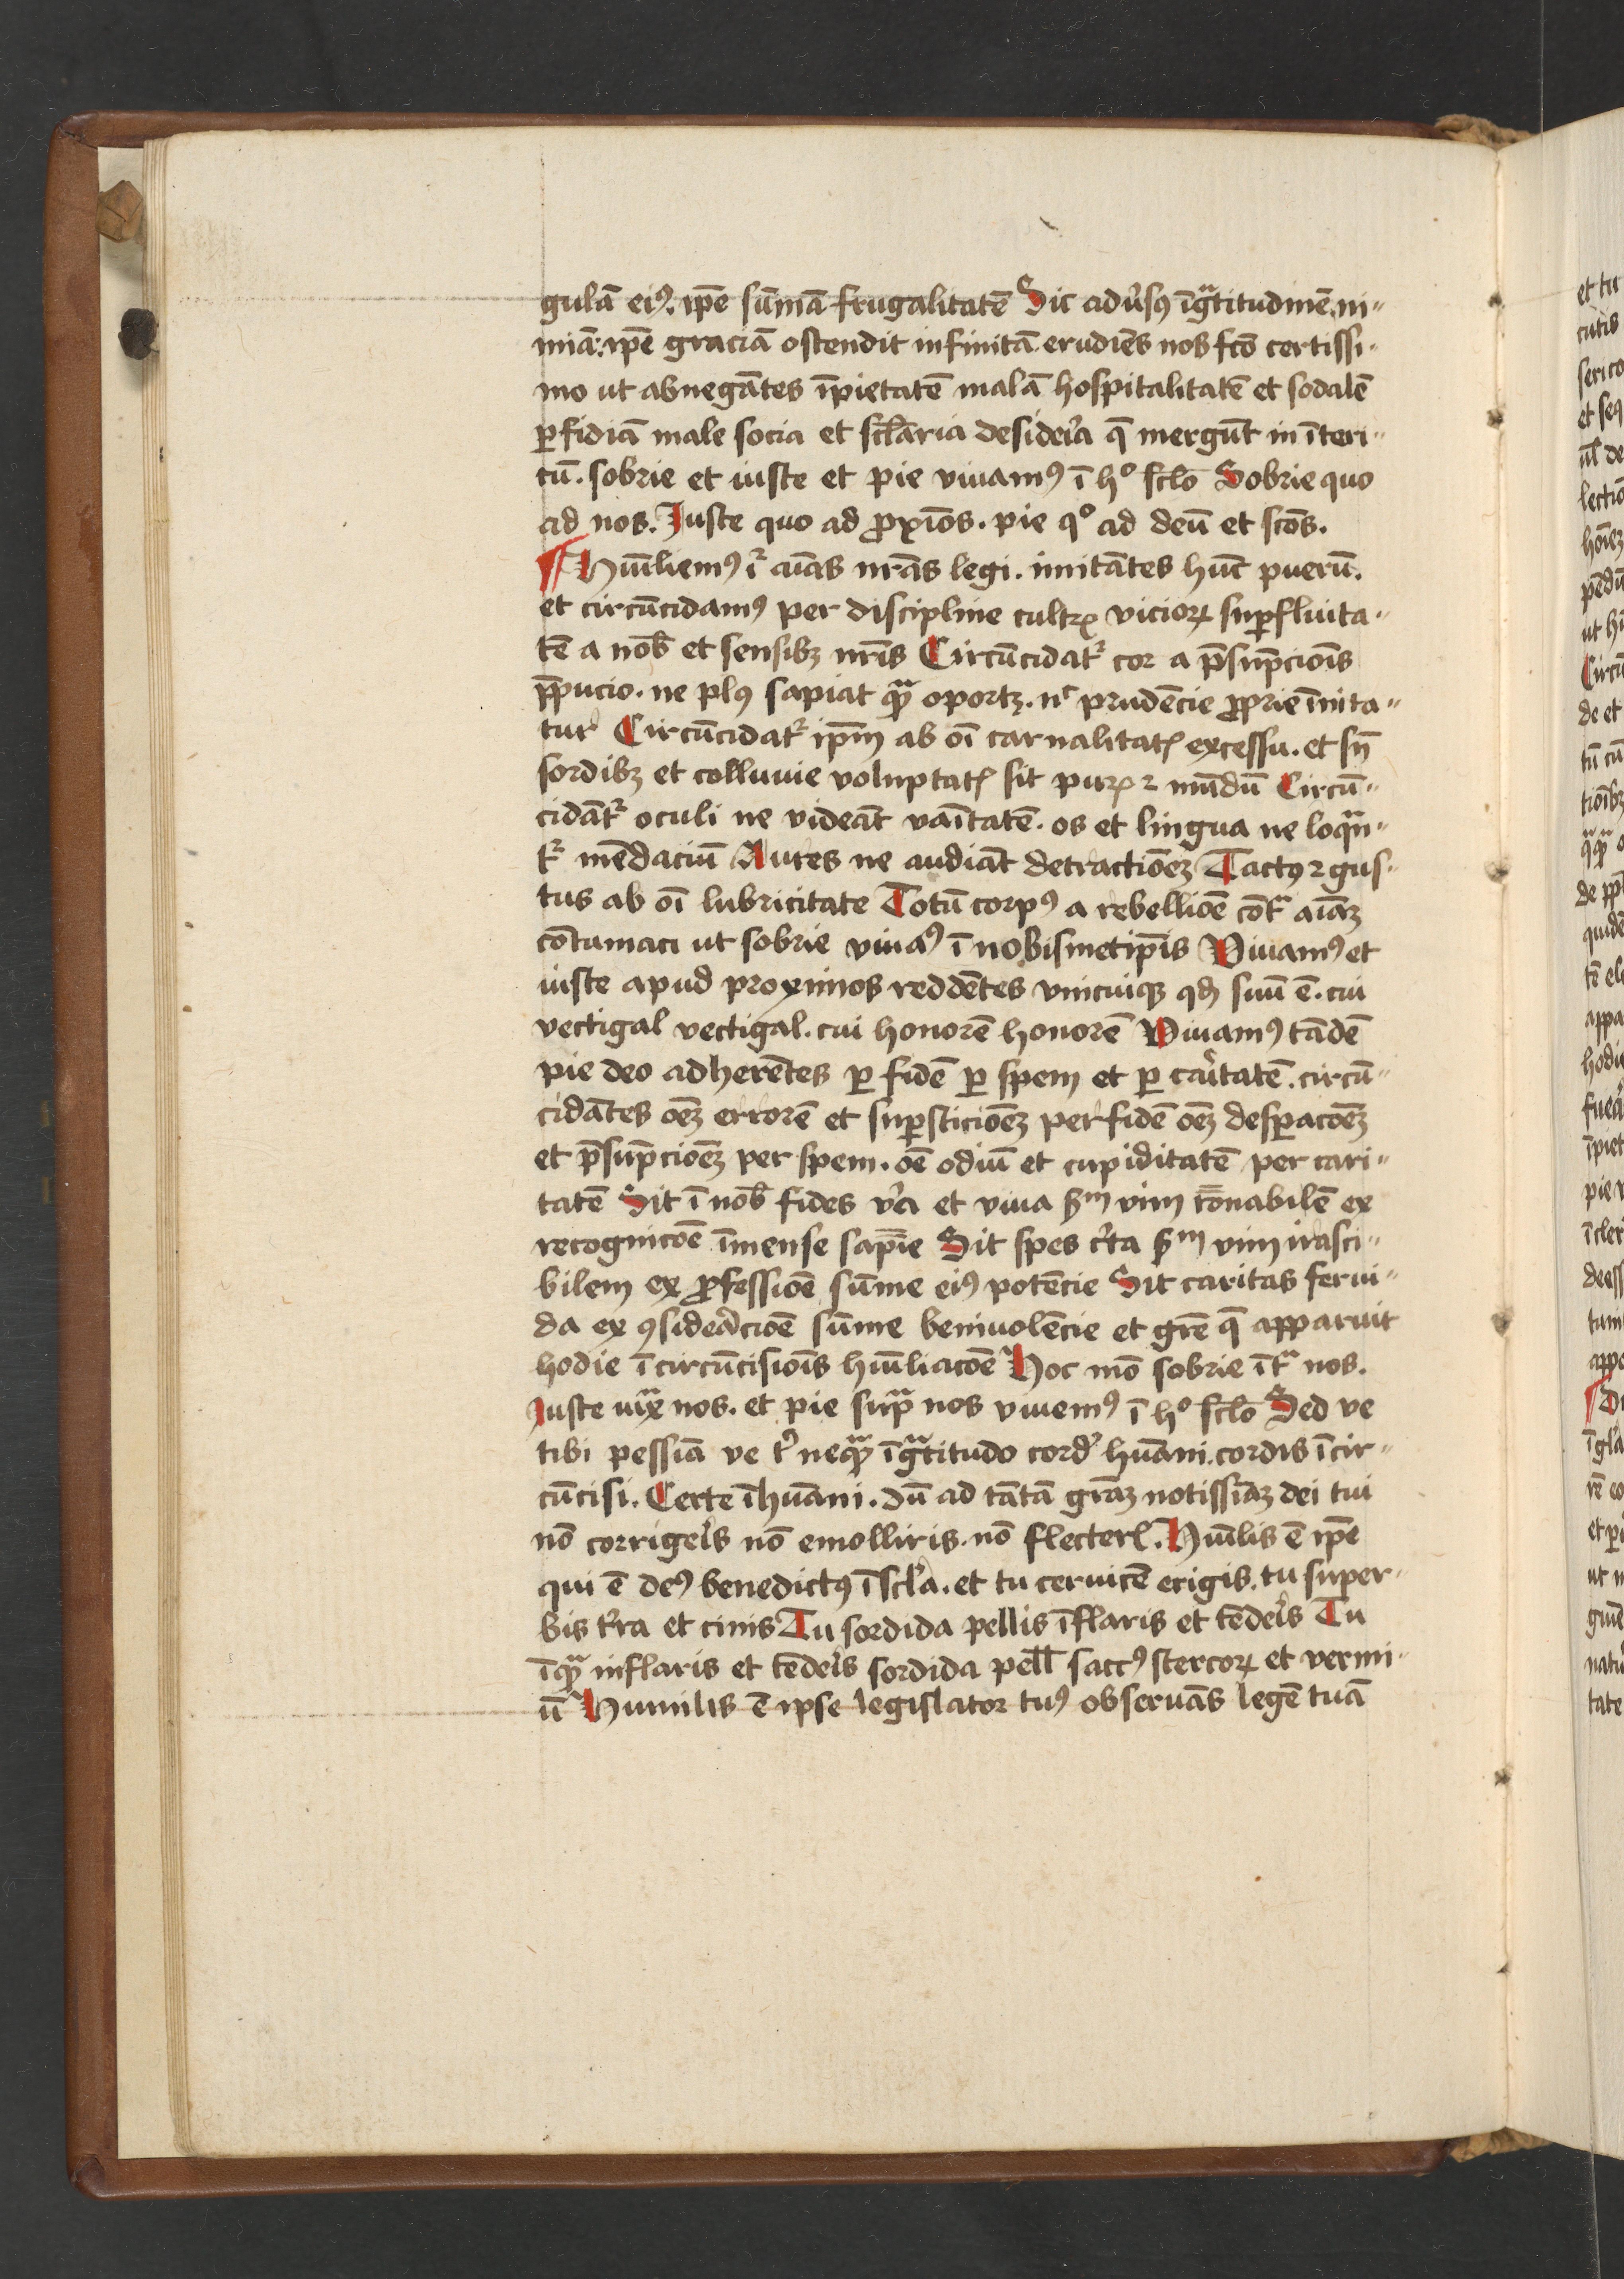 gulā ei⁹. ip̄e sūmā frugalitatē Sic adu̓sꝰ īgᵃtitudinē ni-
miā: ip̄e graciā ostendit infinitā erudiēs nos fcō certissi-
mo ut abnegātes īpietatē malā hospitalitatē et sodalē
ꝑfidiā male socia et sclāria desideꝛ̓a q̄ mergūt in īteri-
tū. sobrie et iuste et pie viuamꝰ ī hº sclō Sobrie quo
ad nos. Juste quo ad ꝓxīos. pie qº ad deū et scōs.
¶ Hūiliemꝰ iᵍ aīas nrās legi. imitātes hūc puerū.
et circūcidamꝰ per discipline cultrꝭ vicioꝝ suꝑfluita-
tē a nob̄ et sensibꝫ nr̄is Circūcidatᷣ cor a p̄sūpciōis
p̄pucio. ne plꝰ sapiat qᵃꝫ oportꝫ. nᶜ prudēcie ꝓprie īnita-
tur Circūcidatᷣ ip̄m ab oī carnalitatꝭ excessu. et sn̄
sordibꝫ et colluuie voluptatꝭ sit purꝭ ⁊ mūdū Circū-
cidātᷣ oculi ne videāt vāitatē. os et lingua ne loqᵃn-
tᷣ mēdaciū Aures ne audiāt detractiōeꝫ Tactꝰ ⁊ gus-
tus ab oī lubricitate Totū corpꝰ a rebelliōe cōtᵃ aīaꝫ
cōtumaci ut sobrie viuaꝰ ī nobismetip̄is Viuamꝰ et
iuste apud proximos reddētes vnicuiqꝫ qd̄ suū ē. cui
vectigal vectigal. cui honorē honorē Viuamꝰ tādē
pie deo adherētes ꝑ fidē ꝑ spem et ꝑ caꝛ̓itatē. circū-
cidātes oēꝫ errorē et suꝑsticiōeꝫ per fidē oēꝫ desꝑacōeꝫ
et p̄sūpciōeꝫ per spem. oē odiū et cupiditatē per cari-
tatē Sit ī nob̄ fides v̓a et viua ẜm vim rōnabilē ex
recognicōe īmense sapīe Sit spes c̓ta ẜm vim irasci-
bilem ex ꝓfessiōe sūme eiꝰ potēcie Sit caritas ferui-
da ex ꝯsideᵃciōe sūme beniuolēcie et grē q̄ apparuit
hodie ī circūcisiōis hūiliacōe Hoc mō sobrie ītᵃ nos.
Juste iuxᵃ nos. et pie supᵃ nos viuemꝰ ī hº sclō Sed ve
tibi pessīa ve t̓ neqᵃꝫ īgᵃtitudo cord̓ hūani. cordis īcir-
cūcisi. Certe īhūani. dū ad tātā grāꝫ notissīaꝫ dei tui
nō corrigeꝛ̓s nō emolliris. nō flecterꝭ. Hūilis ē ip̄e
qui ē deꝰ benedictꝰ ī scl̓a. et tu ceruicē erigis. tu super-
bis t̓ra et cinis Tu sordida pellis īflaris et tēdeꝛ̓s Tu
īqᵃꝫ inflaris et tēdeꝛ̓s sordida pell̄ saccꝰ stercoꝝ et vermi-
ū Humilis ē ipse legislator tuꝰ obseruās legē tuā